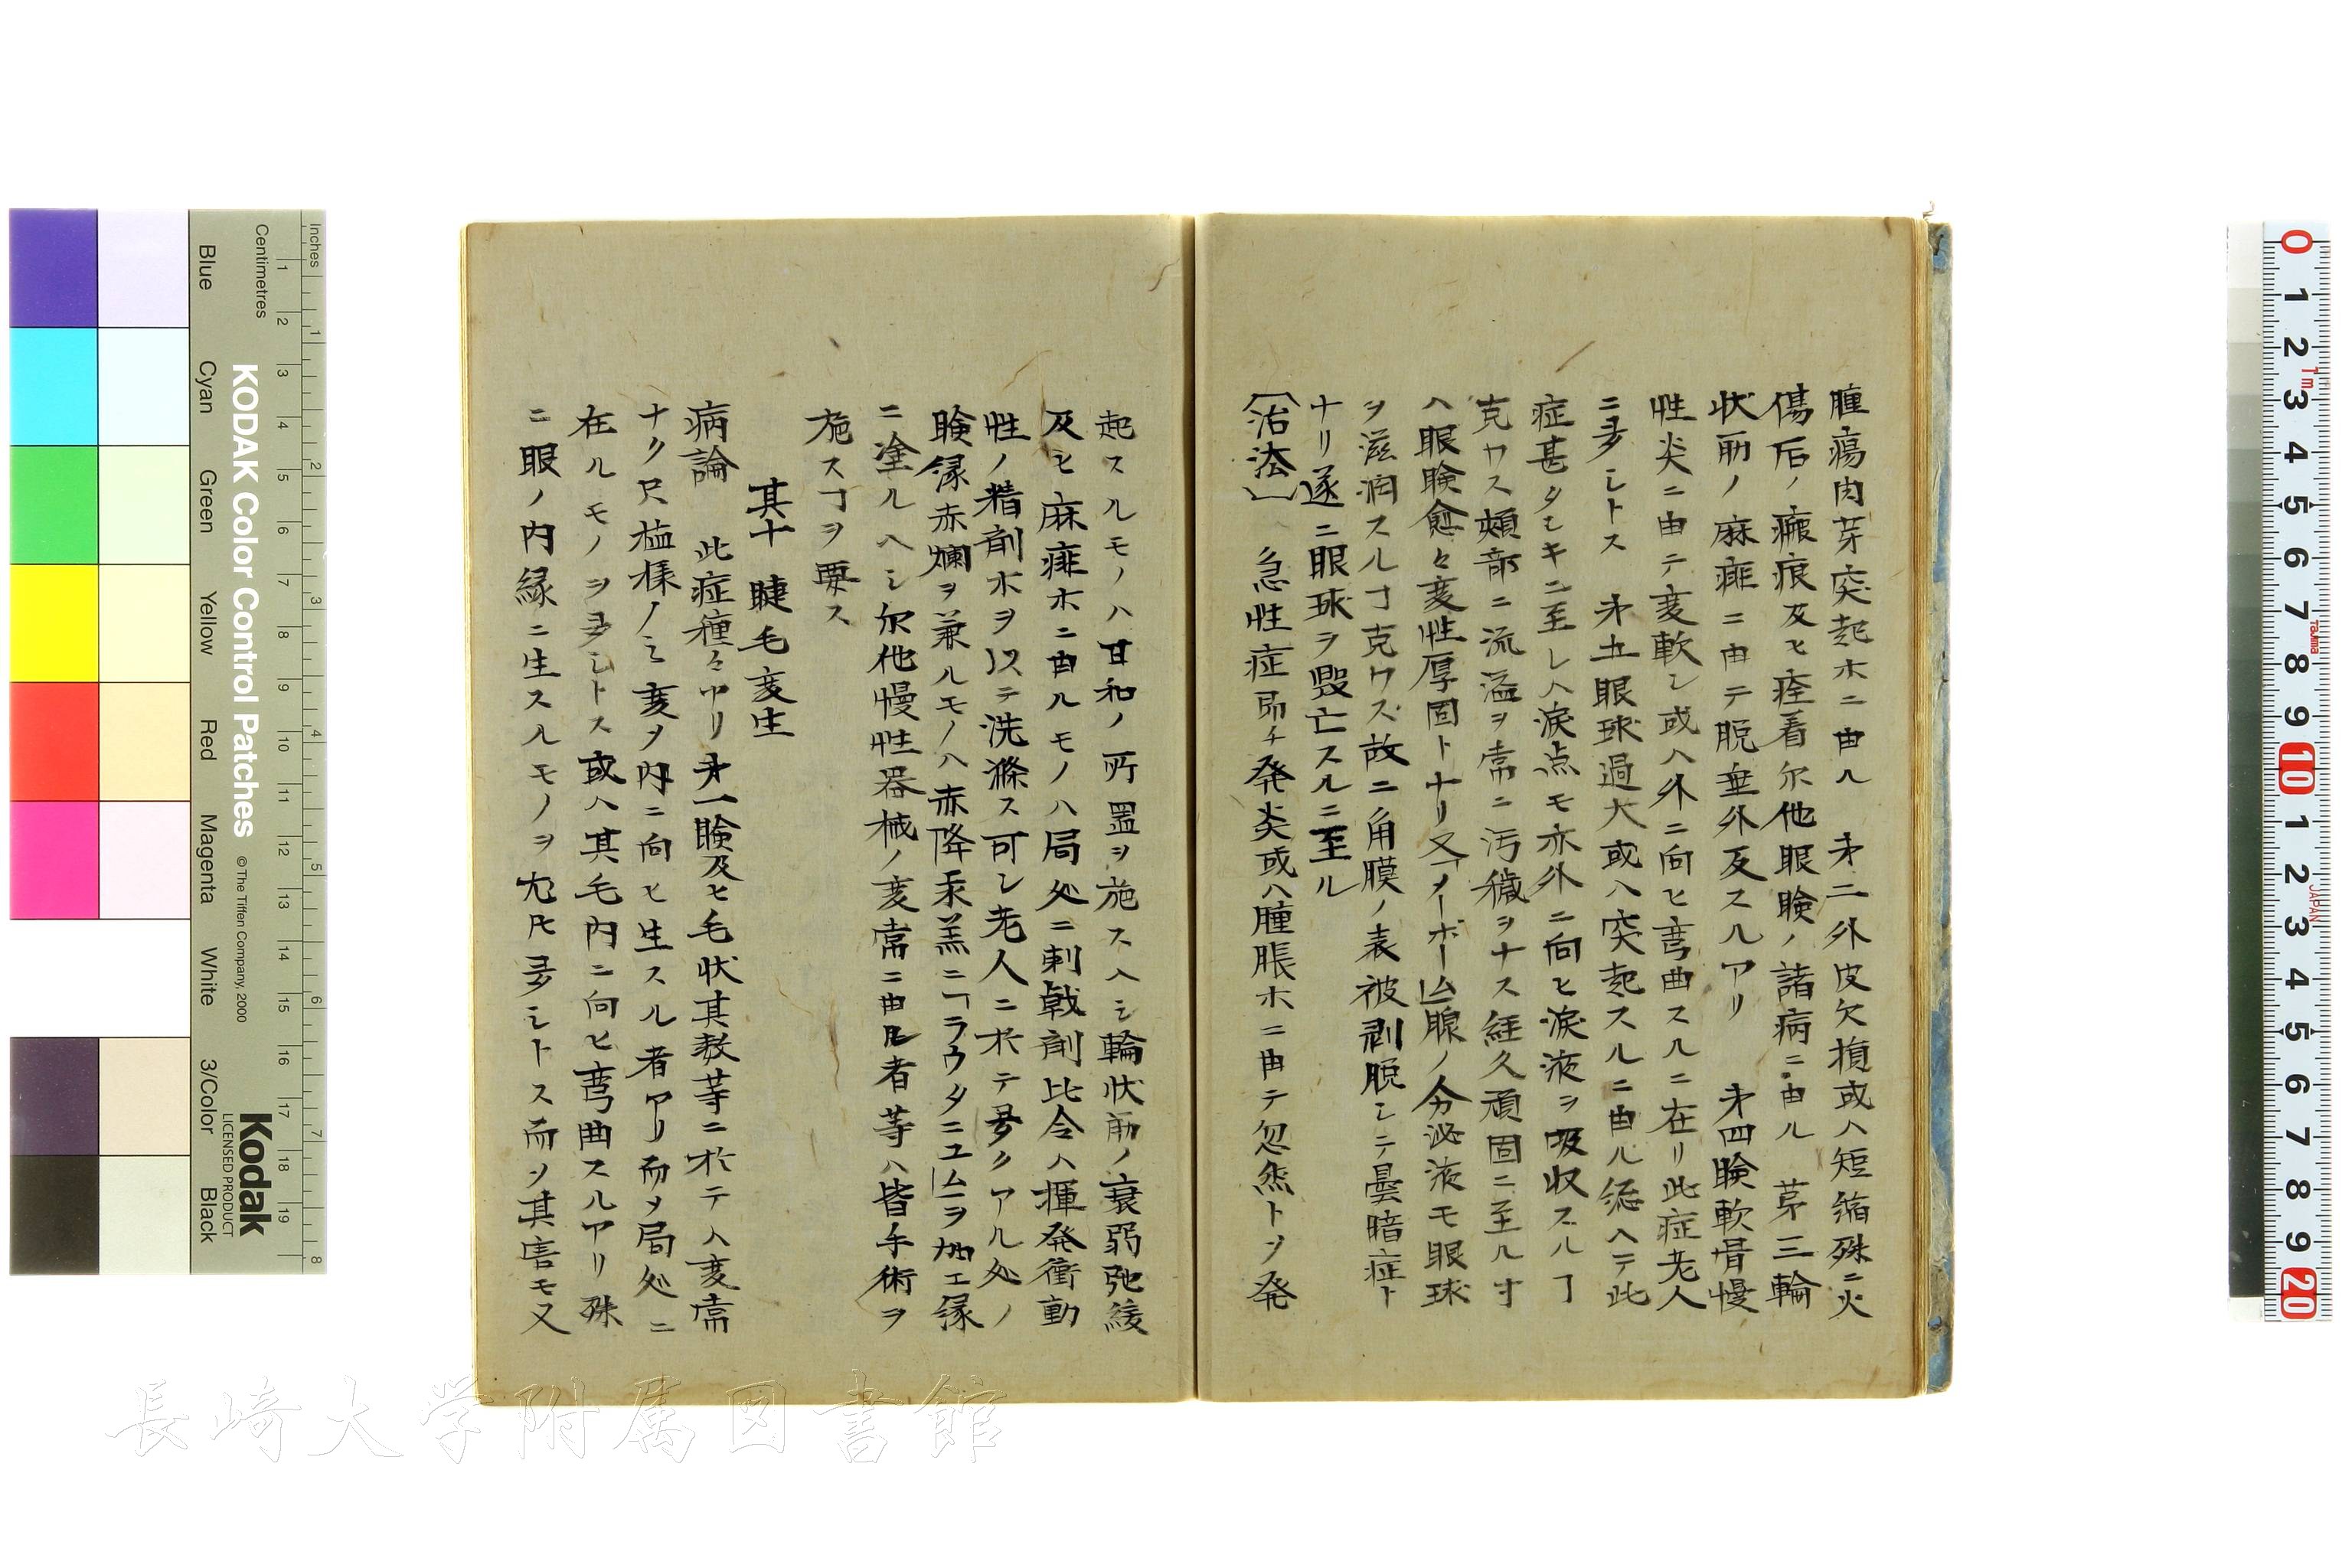 腫瘍肉芽突起ホニ由ル　㐧二外皮欠損或ハ短縮殊ニ火
傷后ノ瘢痕及ヒ痊着尓他眼瞼ノ諸病ニ由ル　㐧三輪
状筋ノ麻痺ニ由テ脱垂外反スルアリ　㐧四瞼軟骨慢
性炎ニ由テ変軟シ或ハ外ニ向ヒ弯曲スルニ在リ此症老人
ニ多シトス　㐧五眼球過大或ハ突起スルニ由ル総ヘテ此
症甚タシキニ至レハ涙点モ亦外ニ向ヒ涙液ヲ吸収スルヿ
克ワス頬部ニ流溢ヲ常ニ汚穢ヲナス経久頑固ニ至ル寸
ハ眼瞼愈々変性厚固トナリ又「メーボーム」腺ノ分泌液モ眼球
ヲ滋潤スルヿ克ワス故ニ角膜ノ表被剥脱シテ曇暗症ト
ナリ遂ニ眼球ヲ毀亡スルニ至ル
〔治法〕　急性症即チ発炎或ハ腫脹ホニ由テ忽然トソ発
起スルモノハ甘和ノ所置ヲ施スヘシ輪状筋ノ衰弱弛緩
及ヒ麻痺ホニ由ルモノハ局処ニ刺戟剤比令ハ揮発衝動
性ノ精剤ホヲ以テ洗滌ス可シ老人ニ於テ多クアル処ノ
瞼縁赤爛ヲ兼ルモノハ赤降汞羔ニ「ラウタニユム」ヲ加エ縁
ニ塗ルヘシ尓他慢性器械ノ変常ニ由ル者等ハ皆手術ヲ
施スヿヲ要ス
其十　睫毛変生
病論　此症種々アリ㐧一瞼及ヒ毛状其数等ニ於テハ変常
ナク只植様ノミ変ヲ内ニ向ヒ生スル者アリ而メ局処ニ
在ルモノヲ多シトス或ハ其毛内ニ向ヒ弯曲スルアリ殊
ニ眼ノ内縁ニ生スルモノヲ尤モ多シトス而ソ其害モ又
KODAK Color Control Patches
©The Tiffen Company, 2000
Kodak
LICENSED PRODUCT
Inches
Centimetres
Blue
Cyan
Green
Yellow
Red
Magenta
White
3/Color
Black
長崎大学附属図書館